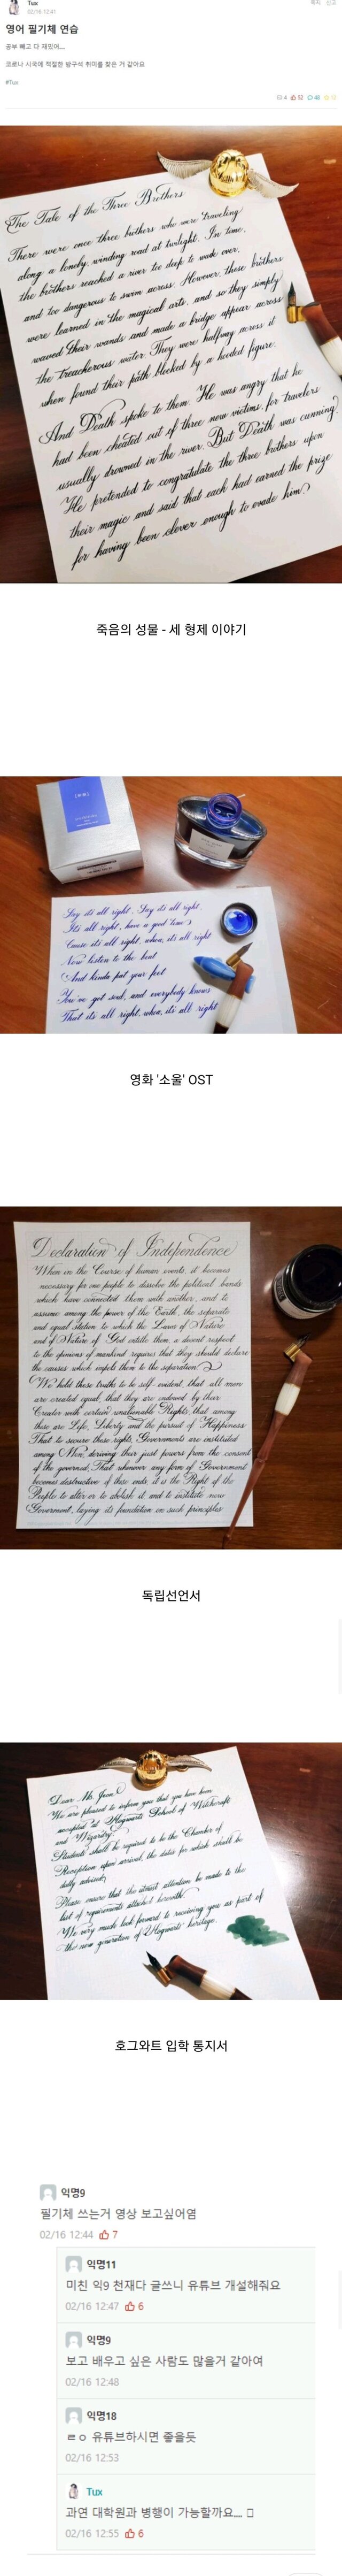 Tux
02/16 12:41
쪽지 신고
영어 필기체 연습
공부 빼고 다 재밌어....
코로나 시국에 적절한 방구석 취미를 찾은 거 같아요
#Tux
4 52 48 12
The Tale of the Three Brothers
There were once three brothers who were traveling
along a lonely, winding road at twilight. In time,
the brothers reached a river too deep to wade over,
and too dangerous to swim across. However, these brothers
were learned in the magical arts, and so they simply
waved their wands and made a bridge appear across
the treacherous water. They were halfway across it
when found their path blocked by a hooded figure.
And Death spoke to them. He was angry that he
had been cheated out of three new victims, for travelers
usually drowned in the river. But Death was cunning?
He pretended to congratulate the three brothers upon
their magic and said that each had earned the prize
for having been clever enough to evade him?
죽음의 성물 - 세 형제 이야기
Say its all right, Say its all right,
Its all right, have a good time's
Cause its all right, whoa, its all right
Now listen to the beat
And kinda pat your feet
You've got soul, and everybody knows
That its all right, whoa, its all right
영화 '소울' OST
Declaration of Independence
When in the Course of human events, it becomes
necessary for one people to dissolve the political bands
which have connected them with another, and to
assume among the power of the Earth, the separate
and equal station to which the Laws of Nature
and of Nature of God entitle them, a decent respect
to the opinions of mankind requires that they should declare
the causes which impel them to the separation
We hold these truths to be self-evident, that all men
are created equal, that they are endowed by their
Creator with certain unalienable Rights, that among
these are Life, Liberty and the pursuit of Happiness
That to secure these rights, Governments are instituted
among Men, deriving their just powers from the consent
of the governed, That whenever any form of Government
becomes destructive of these ends, it is the Right of the
People to alter or to abolish it and to institute new
Goverment, laying its foundation on such principles
독립선언서
Dear Mr. Jeon,
We are pleased to inform you that you have been
accepted at Hogwarts School of Witchcraft
and Wizardry.
Students shall be required to be the Chamber of
Reception upon arrival, the date for which shall be
dully advised,
Please ensure that the utmost attention be made to the
list of requirements attached herewith
We very much look forward to receiving you as part of
the new generation of Hogwarts' heritage.
호그와트 입학 통지서
익명9
필기체 쓰는거 영상 보고싶어염
02/16 12:44 7
익명11
미친 익9 천재다 글쓰니 유튜브 개설해줘요
02/16 12:47 6
익명9
보고 배우고 싶은 사람도 많을거 같아여
02/16 12:48
익명18
ㄹㅇ 유튜브하시면 좋을듯
02/16 12:53
Tux
과연 대학원과 병행이 가능할까요....
02/16 12:55 6